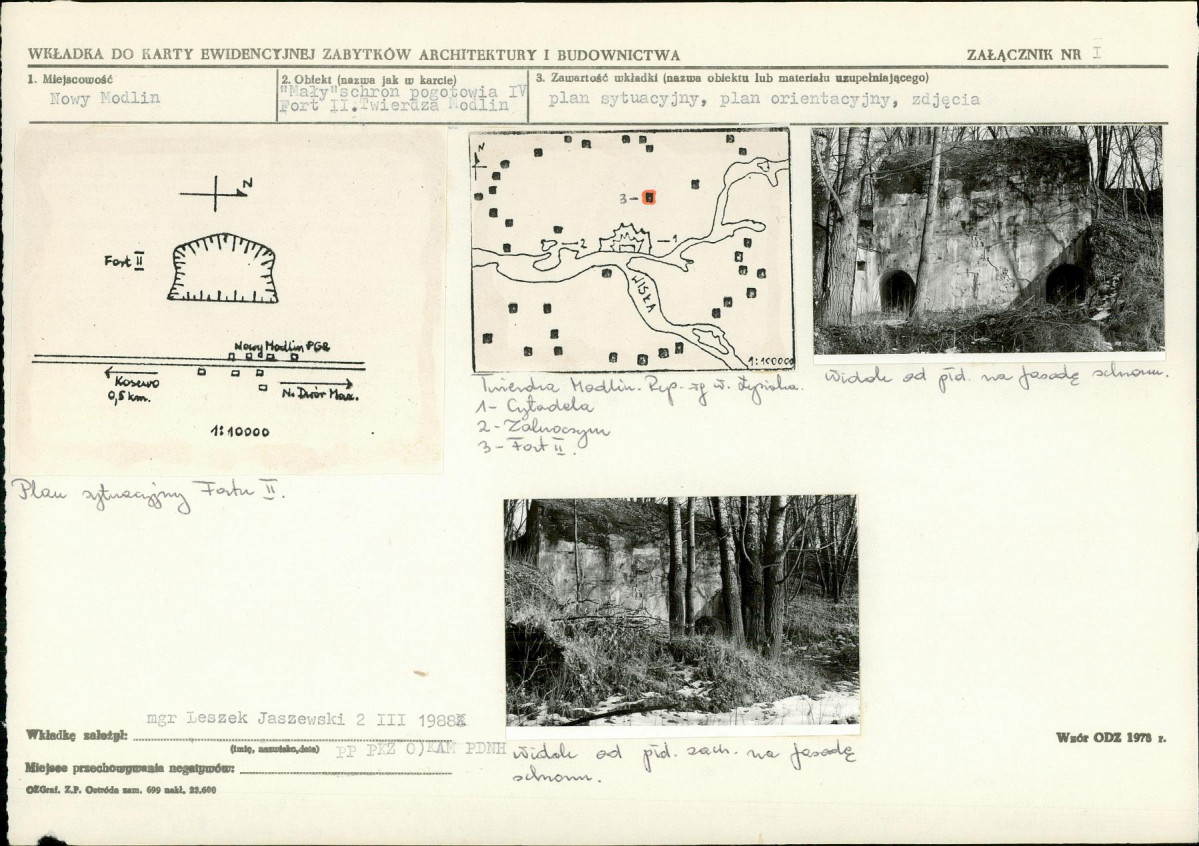 WKŁADKA DO KARTY EWIDENCYJNEJ ZABYTKÓW ARCHITEKTURY I BUDOWNICTWA
ZAŁĄCZNIK NR I
1. Miejscowość
Nowy Modlin
2. Obiekt (nazwa jak w karcie)
"Mały"schron pogotowia IV
Fort II.Twierdza Modlin
3. Zawartość wkładki (nazwa obiektu lub materiału uzupełniającego)
plan sytuacyjny, plan orientacyjny, zdjęcia
N
Fort II
Nowy Modlin PGR
Kosewo
0,5 km.
N. Dwór Maz.
1:10000
Plan sytuacyjny Fortu II.
N
3-
-2
-1
WISŁA
1:100000
Twierdza Modlin. Rep. wg
1- Cytadela
2- Zakroczym
3- Fort II.
Widok od płd. na fasadę schronu.
Widok od płd. zach. na fasadę
schronu.
mgr Leszek Jaszewski 2 III 1988
Wkładkę założył:
(imię, nazwisko,data)
PP PKZ O)KAM PDNH
Miejsce przechowywania negatywów:
OZGraf. Z.P. Ostróda zam. 699 nakł. 22.600
Wzór ODZ 1978 r.